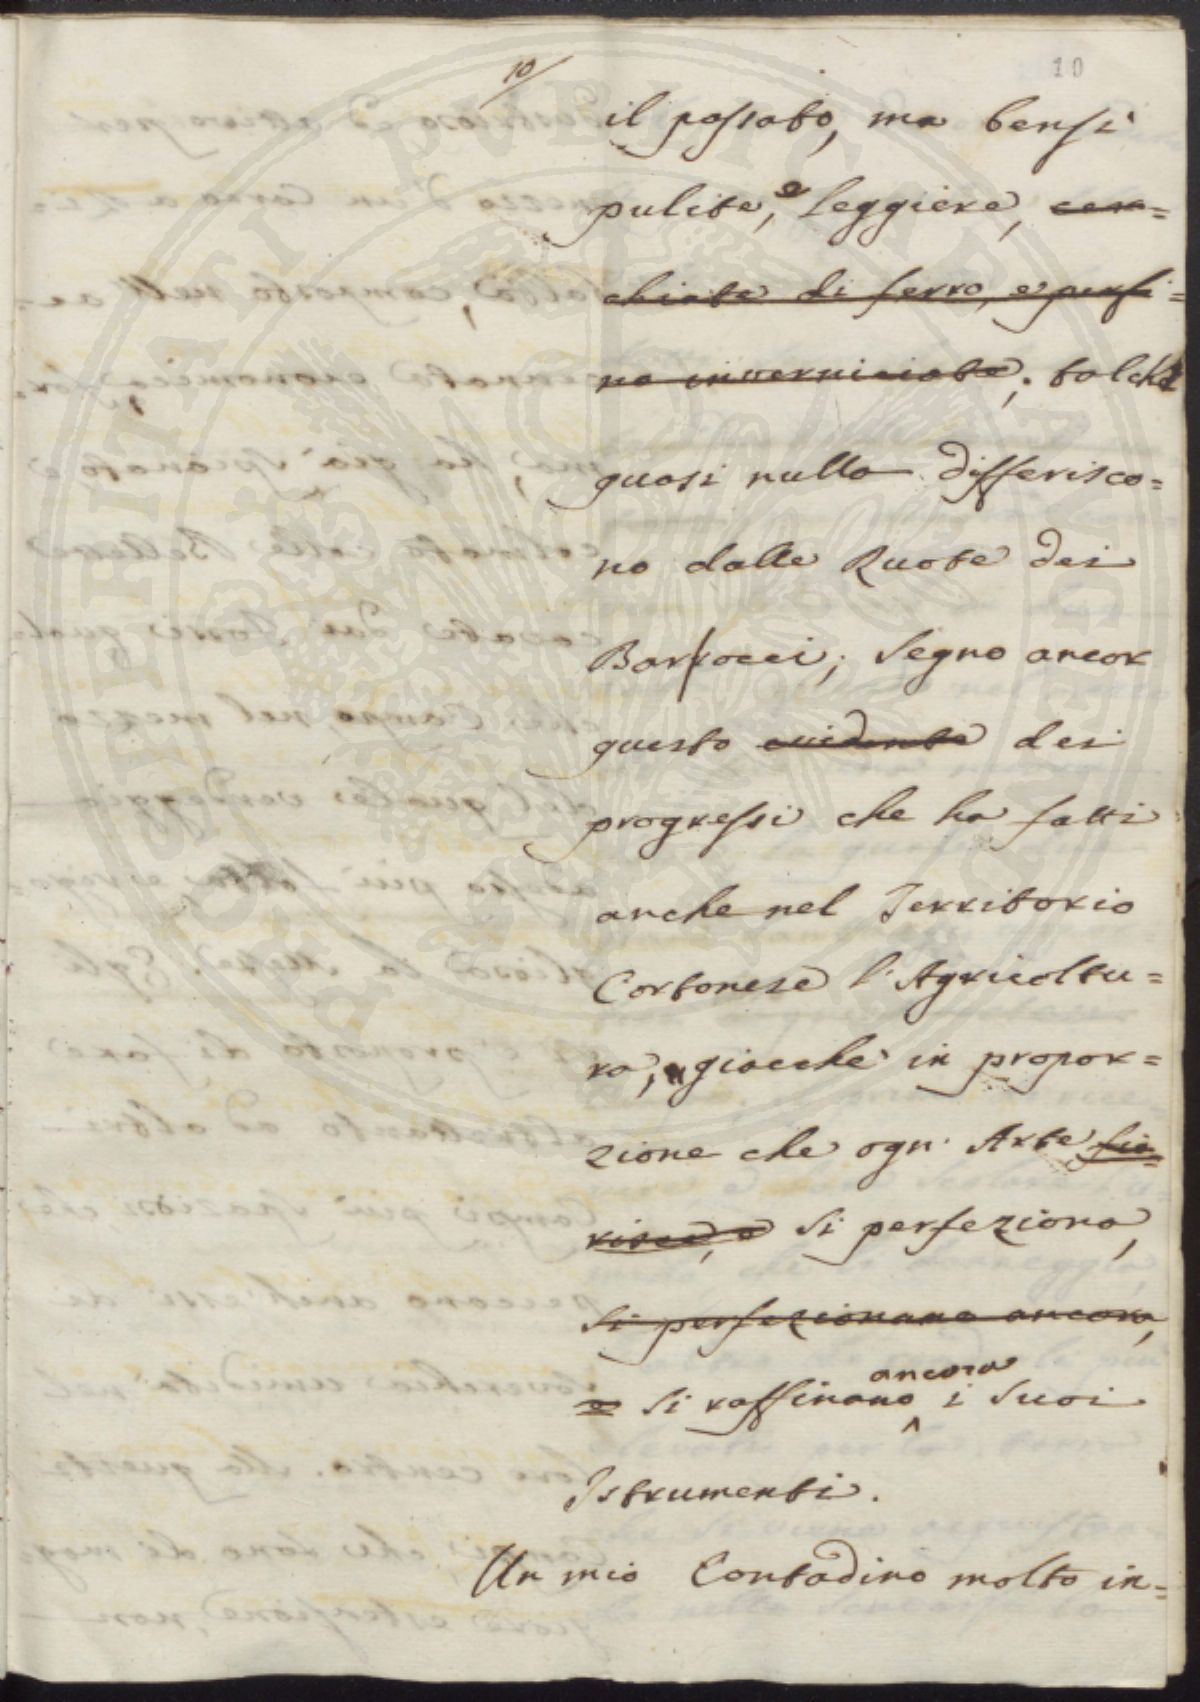 10/
10
il passato, ma bensì
pulite, e leggiere, cer=
chiate di ferro, e persi=
no inverniciate; talchè
quasi nulla differisco=
no dalle Ruote dei
Barrocci; Segno ancor
questo evidente dei
progressi che ha fatti
anche nel Territorio
Cortonese l'Agricoltu=
ra, giacche in propor=
zione che ogn' Arte fio=
risce, e si perfeziona,
si perfezionano ancora,
e si raffinano ancora i suoi
Istrumenti.
Un mio Contadino molto in=